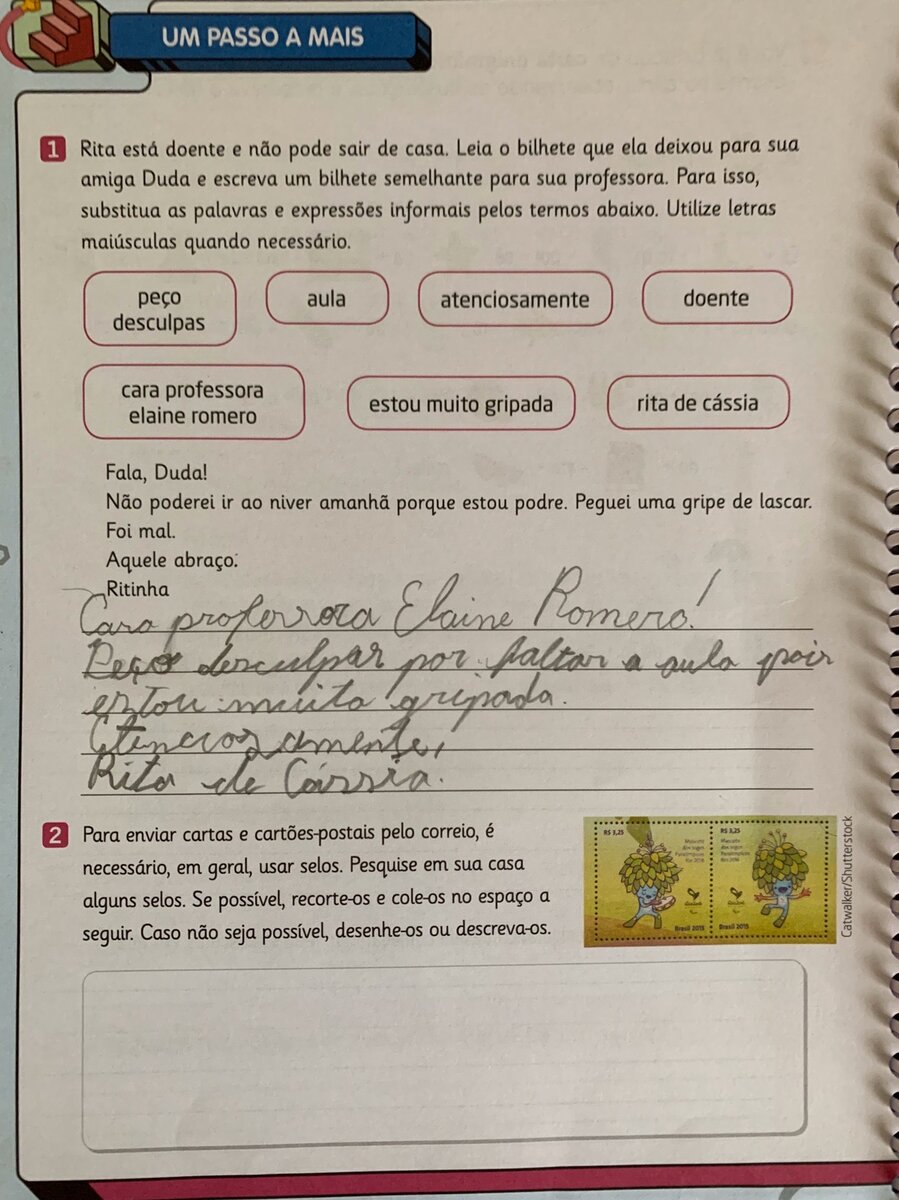 UM PASSO A MAIS
1 Rita está doente e não pode sair de casa. Leia o bilhete que ela deixou para sua
amiga Duda e escreva um bilhete semelhante para sua professora. Para isso,
substitua as palavras e expressões informais pelos termos abaixo. Utilize letras
maiúsculas quando necessário.
peço
desculpas
aula
atenciosamente
doente
cara professora
elaine romero
estou muito gripada
rita de cássia
Fala, Duda!
Não poderei ir ao niver amanhã porque estou podre. Peguei uma gripe de lascar.
Foi mal.
Aquele abraço.
Ritinha
Cara professora Elaine Romero!
Peço desculpas por faltar a aula pois
estou muito gripada.
Atenciosamente,
Rita de Cássia.
2 Para enviar cartas e cartões-postais pelo correio, é
necessário, em geral, usar selos. Pesquise em sua casa
alguns selos. Se possível, recorte-os e cole-os no espaço a
seguir. Caso não seja possível, desenhe-os ou descreva-os.
R$ 3,25
Mascote
dos Jogos
Paralímpicos
Rio 2016
Brasil 2015
R$ 3,25
Mascote
dos Jogos
Paralímpicos
Rio 2016
Brasil 2015
Catwalker/Shutterstock